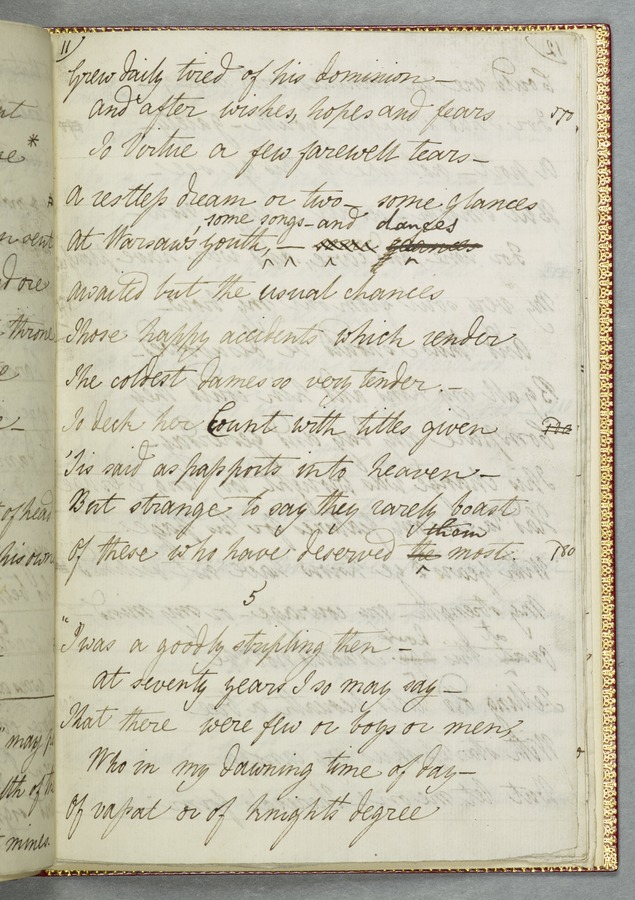 11)
Grew daily tired of his dominion —
and after wishes, hopes and fears
170.
To Virtue a few farewell tears —
A restless dream or two — some glances
some songs — and dances
At Warsaw's youth, —
awaited but the usual chances
Those happy accidents which render
The coldest dames so very tender, —
To deck her Count with titles given
'Tis said as passports into heaven —
But strange to say they rarely boast
them
Of these who have deserved the most.
180
5
"I was a goodly stripling then —
At seventy years I so may say —
That there were few or boys or men,
Who in my dawning time of day —
Of vassal or of Knight's degree
nt
se *
throne
of head
his own
"may
mines.